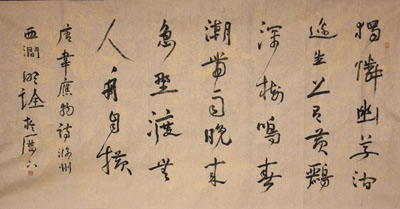 獨憐幽草澗
邊生上有黃鸝
深樹鳴春
潮帶雨晚來
急埜渡無
人舟自橫
唐韋應物詩滁州
西澗 明詮於歷下